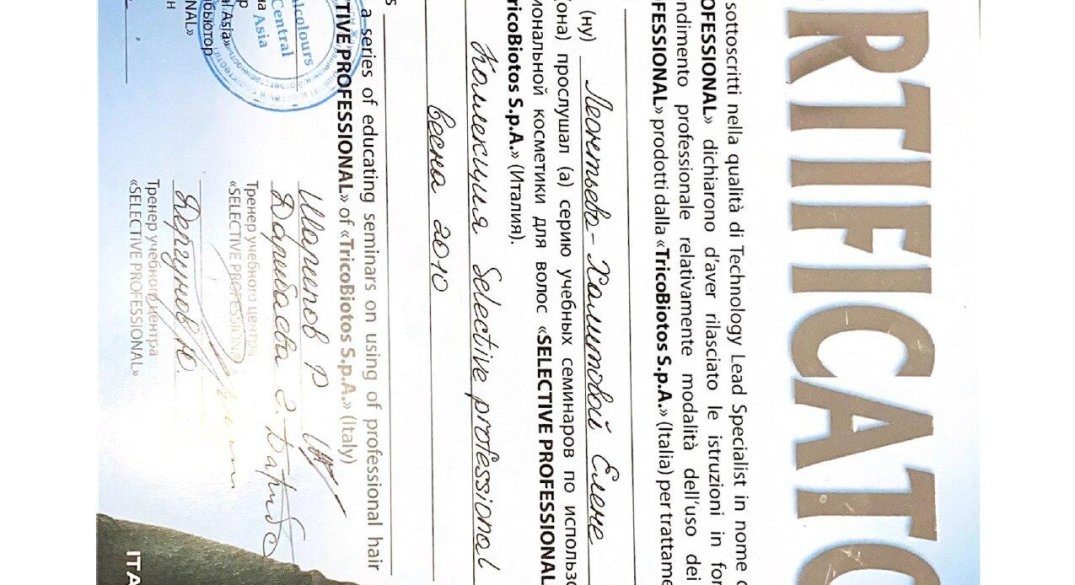 RTIFICATO
sottoscritti nella qualità di Technology Lead Specialist in nome
OFESSIONAL» dichiarono d'aver rilasciato le istruzioni in
ndimento professionale relativamente modalità dell'uso dei
FESSIONAL» prodotti dalla «TricoBiotos S.p.A.» (Italia) per trattame
(ну) Леонтьево-Халитовой Елене
(она) прослушал (а) серию учебных семинаров по использо
иональной косметики для волос «SELECTIVE PROFESSIONAL
TricoBiotos S.p.A.» (Италия).
Коллекция Selective professional
весна 2010
s
a series of educating seminars on using of professional hair
TIVE PROFESSIONAL» of «TricoBiotos S.p.A.» (Italy)
Шарипов Р
Дарибаева З.
Тренер учебного центра
«SELECTIVE PROFESSIONAL»
Дергунов Ю.
Тренер учебного центра
«SELECTIVE PROFESSIONAL»
alcolours
Central
Asia
l Asia»
бьютор
ONAL»
ITA